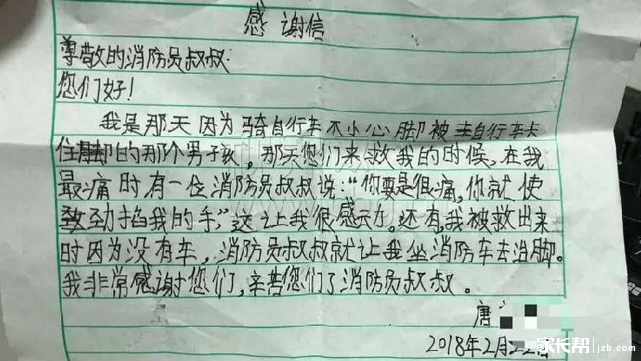 感谢信
尊敬的消防员叔叔:
您们好!
我是那天因为骑自行车不小心脚被自行车卡
住脚的那个男子孩。那天您们来救我的时候,在我
最痛时有一位消防员叔叔说:“你要是很痛,你就使
劲掐我的手,”这让我很感动。还有,我被救出来
时因为没有车,消防员叔叔就让我坐消防车去治脚。
我非常感谢您们,辛苦您们了消防员叔叔。
唐
2018年2月
家长帮 jzb.com